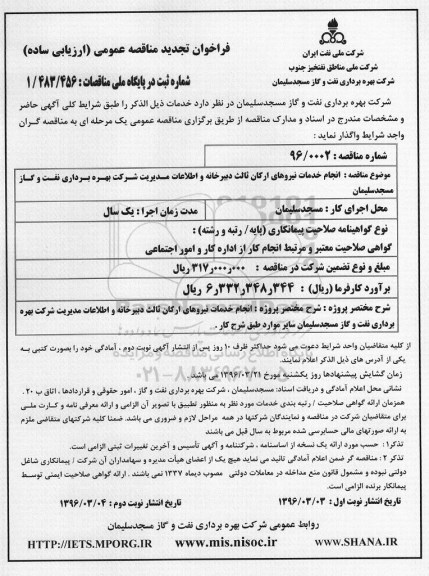 شرکت ملی نفت ایران
شرکت ملی مناطق نفتخیز جنوب
شرکت بهره برداری نفت و گاز مسجدسلیمان
فراخوان تجدید مناقصه عمومی (ارزیابی ساده)
شماره ثبت در پایگاه ملی مناقصات : ۱/۴۸۳/۴۵۶
شرکت بهره برداری نفت و گاز مسجدسلیمان در نظر دارد خدمات ذیل الذکر را طبق شرایط کلی آگهی حاضر
و مشخصات مندرج در اسناد و مدارک مناقصه از طریق برگزاری مناقصه عمومی یک مرحله ای به مناقصه گران
واجد شرایط واگذار نماید :
شماره مناقصه : ۹۶/۰۰۰۲
موضوع مناقصه : انجام خدمات نیروهای ارکان ثالث دبیرخانه و اطلاعات مدیریت شرکت بهره برداری نفت و گاز
مسجدسلیمان
محل اجرای کار : مسجدسلیمان
مدت زمان اجرا : یک سال
نوع گواهینامه صلاحیت پیمانکاری (پایه/ رتبه و رشته) :
گواهی صلاحیت معتبر و مرتبط انجام کار از اداره کار و امور اجتماعی
مبلغ و نوع تضمین شرکت در مناقصه : ۳۱۷٫۰۰۰٫۰۰۰ ریال
برآورد کارفرما (ریال) : ۶٫۳۳۲٫۳۴۸٫۳۴۴ ریال
شرح مختصر پروژه : شرح مختصر پروژه : انجام خدمات نیروهای ارکان ثالث دبیرخانه و اطلاعات مدیریت شرکت بهره
برداری نفت و گاز مسجدسلیمان سایر موارد طبق شرح کار .
از کلیه متقاضیان واجد شرایط دعوت می شود حداکثر ظرف ۱۰ روز پس از انتشار آگهی نوبت دوم ، آمادگی خود را بصورت کتبی به
یکی از آدرس های ذیل الذکر اعلام نمایند.
زمان گشایش پیشنهادها روز یکشنبه مورخ ۱۳۹۶/۰۳/۲۱ می باشد.
نشانی محل اعلام آمادگی و دریافت اسناد: مسجدسلیمان ، شرکت بهره برداری نفت و گاز ، امور حقوقی و قراردادها ، اتاق ب ۲۰ .
همزمان ارائه گواهی صلاحیت / رتبه بندی خدمات مورد نظر به منظور تطبیق با تصویر آن الزامی و ارائه معرفی نامه و کارت ملی
برای متقاضیان شرکت در مناقصه و نمایندگان شرکتها در همه مراحل لازم و ضروری می باشد. ضمنا کلیه شرکتهای متقاضی ملزم
به ارائه صورتهای مالی حسابرسی شده مربوط به سال قبل می باشند
تذکر۱ : حسب مورد ارائه یک نسخه از اساسنامه ، شرکتنامه و آگهی تأسیس و آخرین تغییرات ثبتی الزامی است.
تذکر ۲ : مناقصه گر ضمن اعلام آمادگی تائید می نماید هیچ یک از اعضای هیأت مدیره و سهامداران آن شرکت / پیمانکاری شاغل
دولتی نبوده و مشمول قانون منع مداخله در معاملات دولتی مصوب دیماه ۱۳۳۷ نمی باشند . ارائه گواهی صلاحیت ایمنی توسط
پیمانکار برنده الزامی است.
تاریخ انتشار نوبت اول : ۱۳۹۶/۰۳/۰۳
تاریخ انتشار نوبت دوم : ۱۳۹۶/۰۳/۰۴
روابط عمومی شرکت بهره برداری نفت و گاز مسجدسلیمان
HTTP://IETS.MPORG.IR
www.mis.nisoc.ir
WWW.SHANA.IR